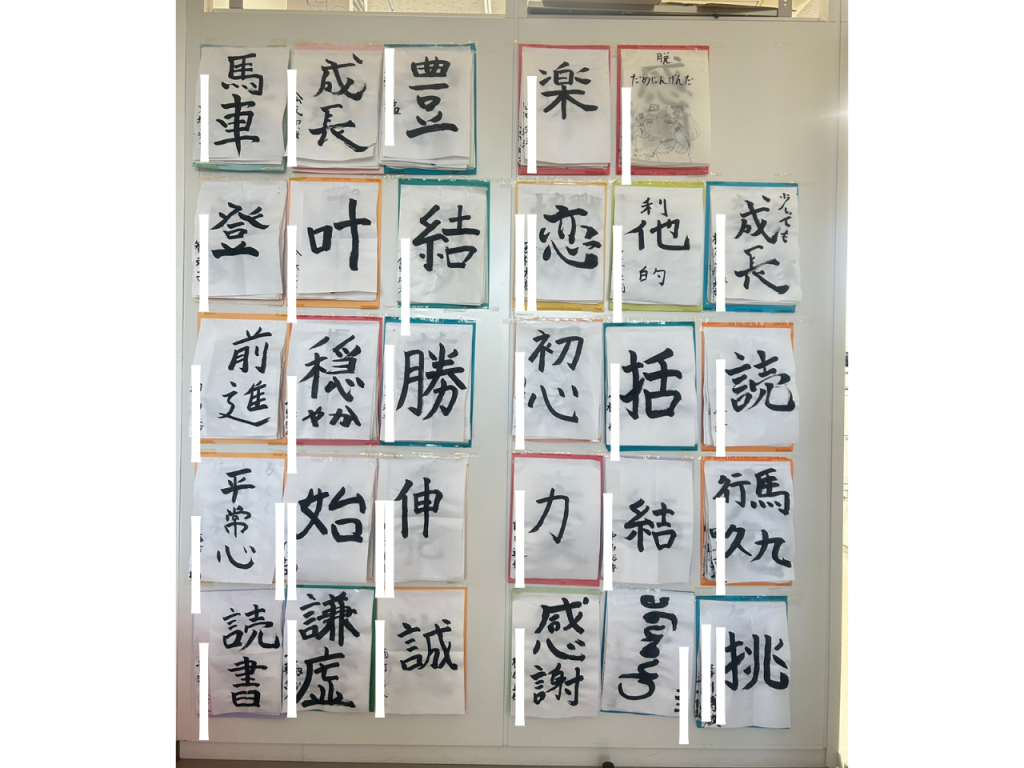 馬車
成長
豊
楽
脱
だめにんげんだ
登
叶
結
恋
利他的
少しでも
成長
前進
穏やか
勝
初心
括
読
平常心
始
伸
力
結
馬九行久
読書
謙虚
誠
感謝
change
挑